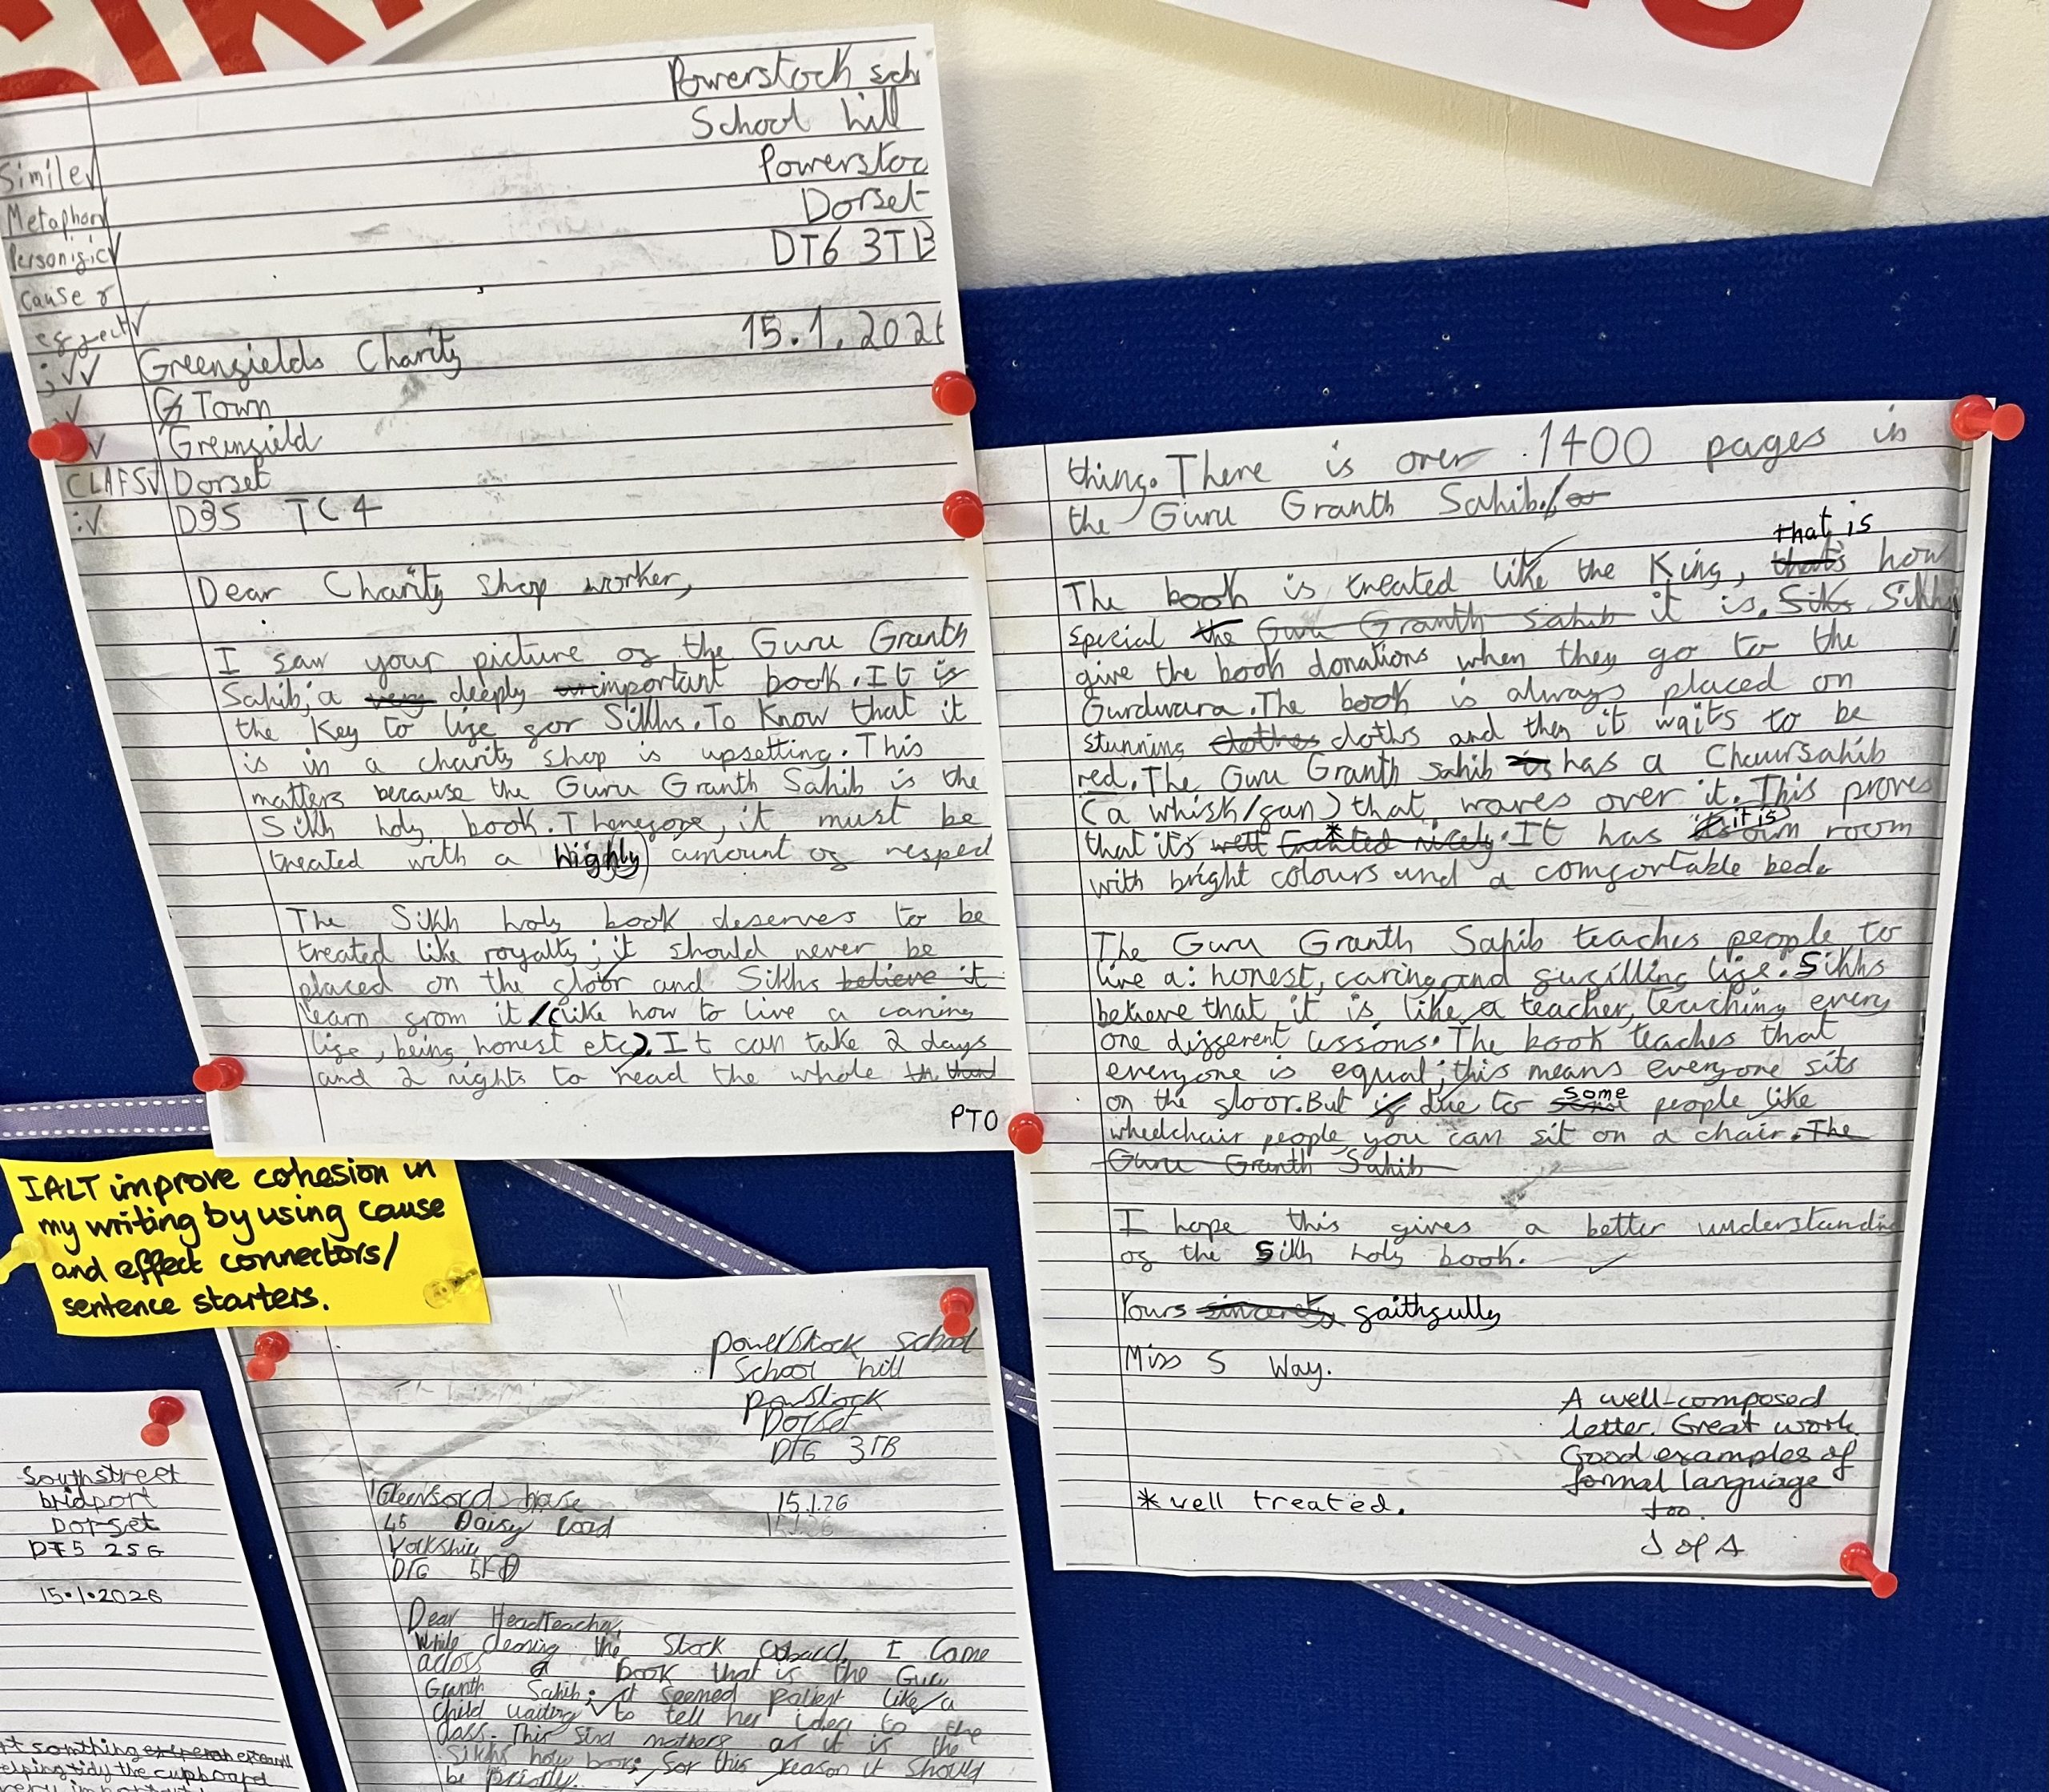 Powerstock sch
School hill
Powerstoc
Dorset
DT6 3TB
15.1.202
Simile✓
Metaphor
Personific✓
Cause &
effect✓
;✓✓
✓
✓
CLAFS✓
:✓
Greenfields Charity
Town
Greenfield
Dorset
D35 TC4
Dear Charity shop worker,
I saw your picture of the Guru Granth
Sahib; a very deeply important book. It is
the key to life for Sikhs. To know that it
is in a charity shop is upsetting. This
matters because the Guru Granth Sahib is the
Sikh holy book. Therefore, it must be
treated with a highly amount of respect
The Sikh holy book deserves to be
treated like royalty; it should never be
placed on the floor and Sikhs believe it
learn from it (like how to live a caring
life, being honest etc). It can take 2 days
and 2 nights to read the whole
PTO
thing. There is over 1400 pages in
the Guru Granth Sahib.
that is
The book is treated like the King, that's how
special the Guru Granth Sahib it is. Siks Sikhs
give the book donations when they go to the
Gurdwara. The book is always placed on
stunning clothes cloths and then it waits to be
red. The Guru Granth Sahib is has a Chaursahib
(a whisk/fan) that waves over it. This proves
that it's well treated nicely. * It has its own room
it is
with bright colours and a comfortable bed.
The Guru Granth Sahib teaches people to
live a: honest, caring and fulfilling life. Sikhs
believe that it is like a teacher, teaching every
one different lessons. The book teaches that
everyone is equal; this means everyone sits
on the floor. But if due to some people like
wheelchair people, you can sit on a chair. The
Guru Granth Sahib
I hope this gives a better understandin
of the Sikh holy book. ✓
Yours sincerely faithfully
Miss S Way.
A well-composed
letter. Great work.
Good examples of
formal language
too.
J of A
*well treated.
IALT improve cohesion in
my writing by using cause
and effect connectors/
sentence starters.
Powerstock school
School hill
Powstock
Dorset
DT6 3TB
15.1.26
45 Daisy road
Yorkshire
DT6
Dear HeadTeacher,
While cleaning the Stock I came
across a book that is the Guru
Granth Sahib; it seemed patient like a
child waiting to tell her idea to the
class. This find matters as it is the
Sikhs holy book; for this reason it should
be
Southstreet
bridport
Dorset
DT5 25G
15.1.2026
somthing
elping tidy the cupboard